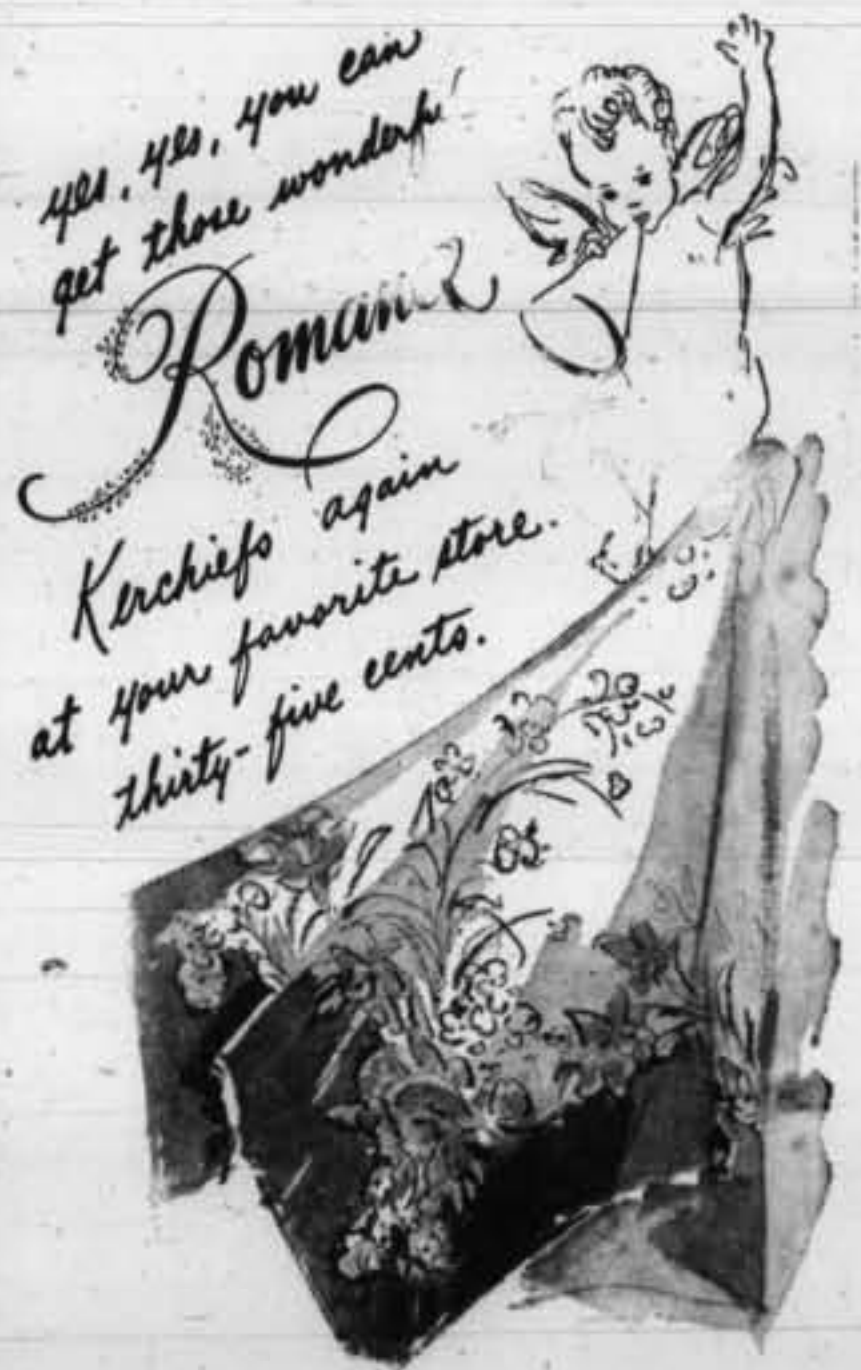 yes, yes, you can
get those wonderful
Romance
Kerchiefs again
at your favorite store.
thirty-five cents.